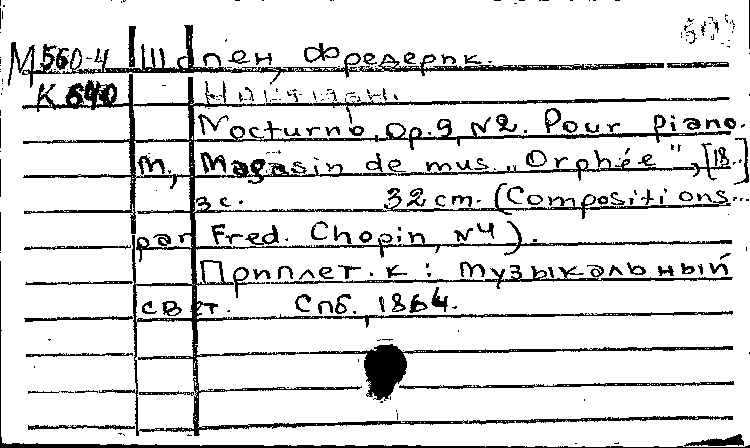 М560-4 Шопен, Фредерик.
К 640 Ноктюрн.
Nocturno, Op. 9, N2. Pour piano.
М., Magasin de mus. „Orphée", [18..]
3 с. 32 cm. (Compositions...
par Fred. Chopin, N4).
Приплет. к: Музыкальный
свет. Спб., 1864.